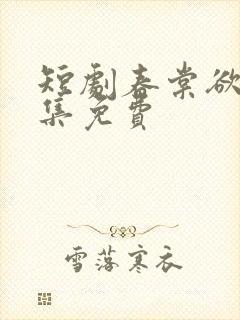 短劇春棠欲
集免費
雪落寒衣